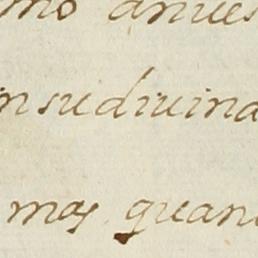 mo anues
nsudiuina
mas quan